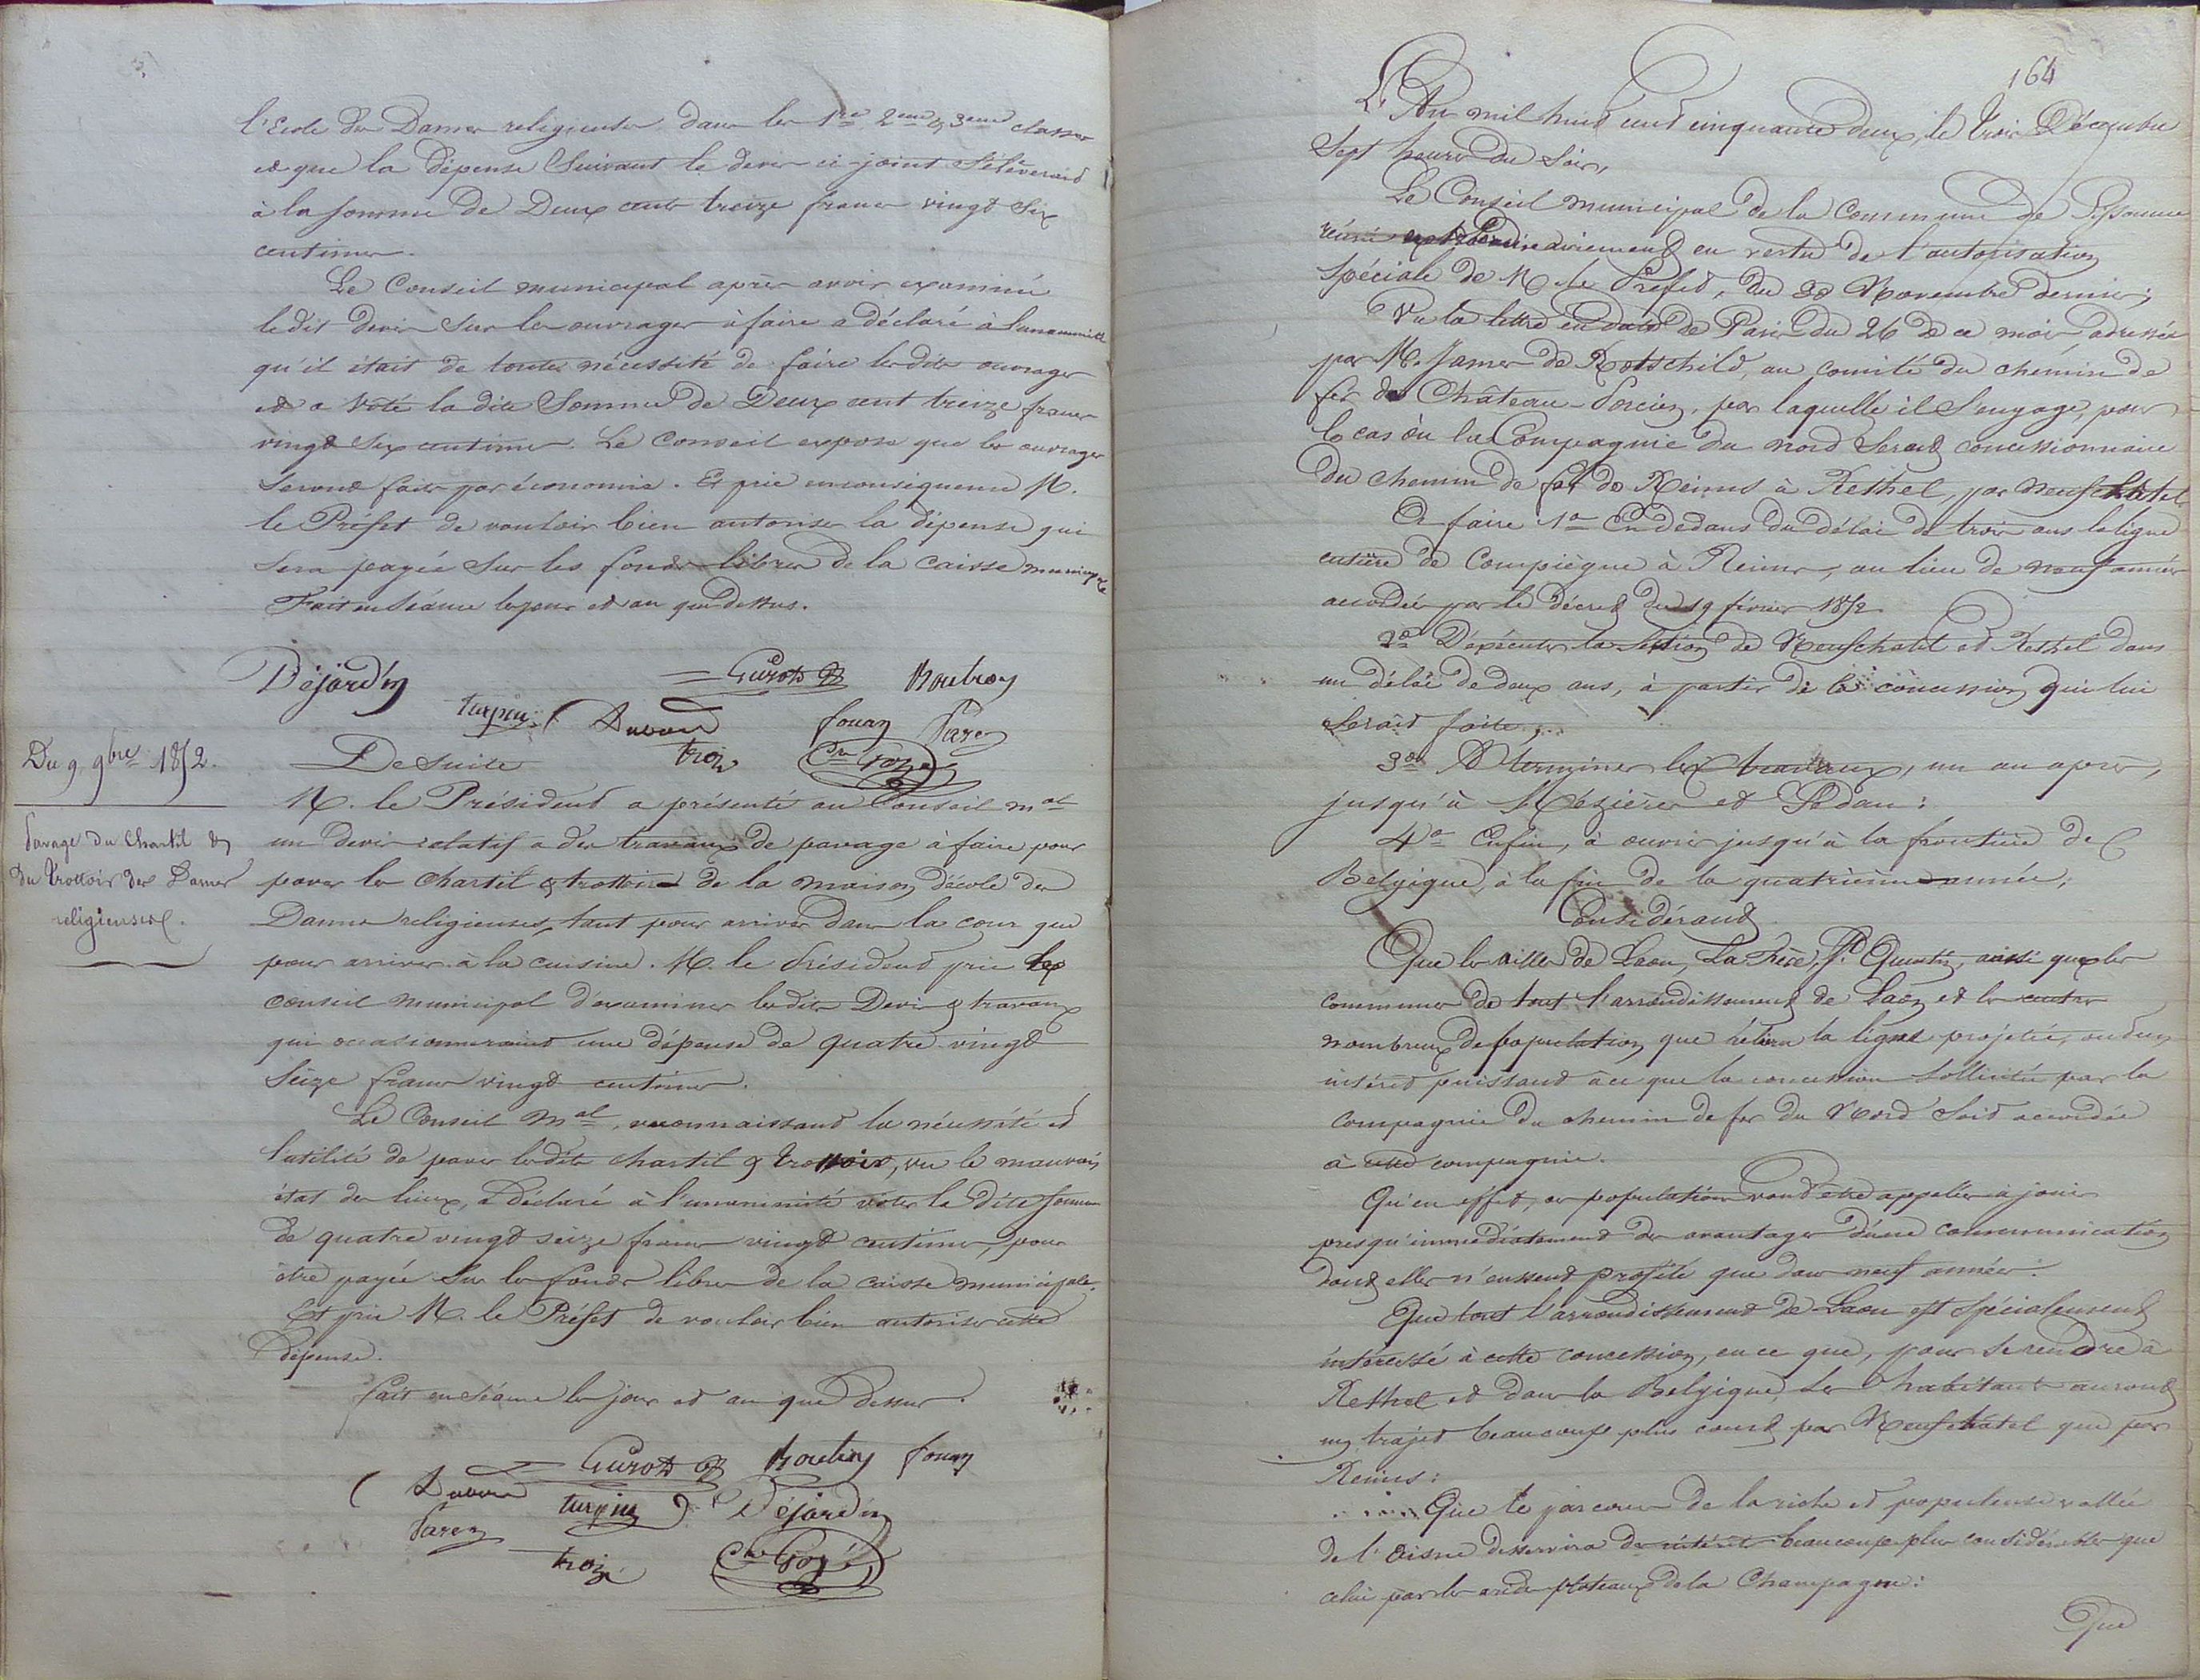 l'Ecole des Dames religieuses dans les 1re 2eme & 3eme classes
et que la dépense suivant le devis ci-joint s'élèverait
à la somme de Deux cent treize francs vingt six
centimes.
Le Conseil municipal après avoir examiné
ledit devis sur les ouvrages à faire a déclaré à l'unanimité
qu'il était de toute nécessité de faire lesdits ouvrages
et a voté la dite Somme de Deux cent treize francs
vingt six centimes. Le Conseil expose que les ouvrages
seront faits par économie. Et prie en conséquence M.
le Préfet de vouloir bien autoriser la dépense qui
sera payée sur les fonds libres de la caisse municipale
Fait en séance les jour et an que dessus.
Déjardin Guiot Boutroy
turpin Fouan Parez
troiz
Du 9 9bre 1852.
Pavage du Chartil &
du Trottoir des Dames
religieuses.
De Suite
M. le Président a présenté au Conseil mal
un devis relatif a des travaux de pavage à faire pour
paver les chartil & trottoirs de la maison d'école des
Dames religieuses, tant pour arriver dans la cour que
pour arriver à la cuisine. M. le Président prie le
conseil municipal d'examiner lesdits Devis & travaux
qui occasionneraient une dépense de quatre-vingt
Seize francs vingt centimes.
Le Conseil mal, reconnaissant la nécessité et
l'utilité de paver lesdits chartil & trottoir, vu le mauvais
état des lieux, a déclaré à l'unanimité voter la dite somme
de quatre vingt seize francs vingt centimes, pour
être payée sur les fonds libres de la caisse municipale.
Et prie M. le Préfet de vouloir bien autoriser cette
dépense.
fait en séance les jour et an que dessus.
Guiot Fouan
turpin Déjardin
Parez
troizé
164
L'An mil huit cent cinquante deux, le trois Décembre
Sept heures du Soir,
Le Conseil municipal de la Commune de Sissonne
réuni extraordinairement en vertu de l'autorisation
spéciale de M. le Préfet, du 30 Novembre dernier;
Vu la lettre en date de Paris du 26 de ce mois, adressée
par M. James de Rotschild, au comité du chemin de
fer de Château-Porcien, par laquelle il s'engage, pour
le cas où la Compagnie du nord serait concessionnaire
du chemin de fer de Reims à Rethel, par Neufchâtel
A faire 1o En dedans du délai de trois ans la ligne
entière de Compiègne à Reims, au lieu de neuf années
accordées par le décret du 19 février 1852
2o D'exécuter la section de Neufchatel et Rethel dans
un délai de deux ans, à partir de la concession qui lui
serait faite;
3o A terminer les travaux, un an après,
jusqu'à Mézières et Sedan:
4o Enfin, à ouvrir jusqu'à la frontière de
Belgique, à la fin de la quatrième année;
Considérant
Que les villes de Laon, La Fère, St Quentin, ainsi que les
communes de tout l'arrondissement de Laon et les centres
nombreux de population que reliera la ligne projetée, ont un
intérêt puissant à ce que la concession sollicitée par la
compagnie du chemin de fer du Nord soit accordée
à cette compagnie.
Qu'en effet, ces populations vont être appelées à jouir
presqu'immédiatement des avantages d'une communication
dont elles n'eussent profité que dans neuf années:
Que tout l'arrondissement de Laon est spécialement
intéressé à cette concession, en ce que, pour se rendre à
Rethel et dans la Belgique, les habitants auront
un trajet beaucoup plus court par Neufchâtel que par
Reims:
Que le parcours de la riche et populeuse vallée
de l'Aisne desservira des intérêts beaucoup plus considérables que
celui par les arides plateaux de la Champagne:
Que